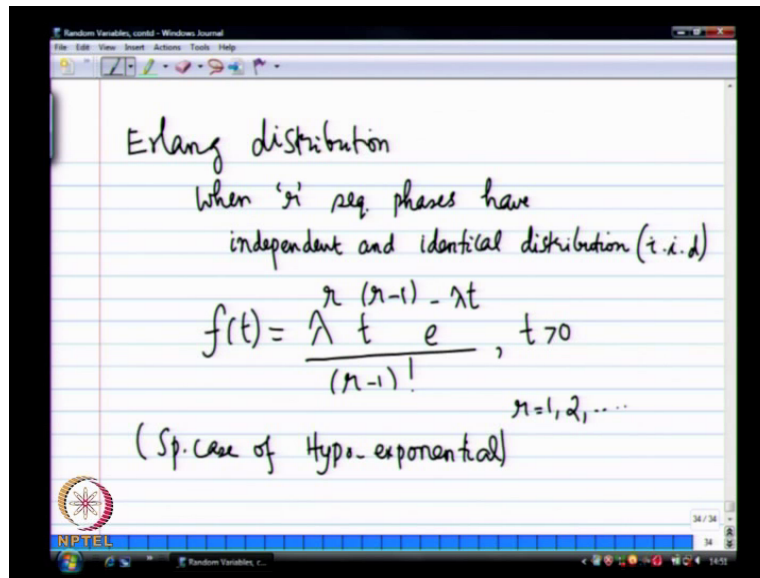 Random Variables, contd - Windows Journal
File Edit View Insert Actions Tools Help
Erlang distribution
When 'r' seq. phases have
independent and identical distribution (i.i.d)
f(t) = λ^r t^(r-1) e^-λt / (r-1)! , t>0
r=1, 2, ....
(Sp. case of Hypo-exponential)
34 / 34
34
NPTEL
Random Variables, c...
14:51